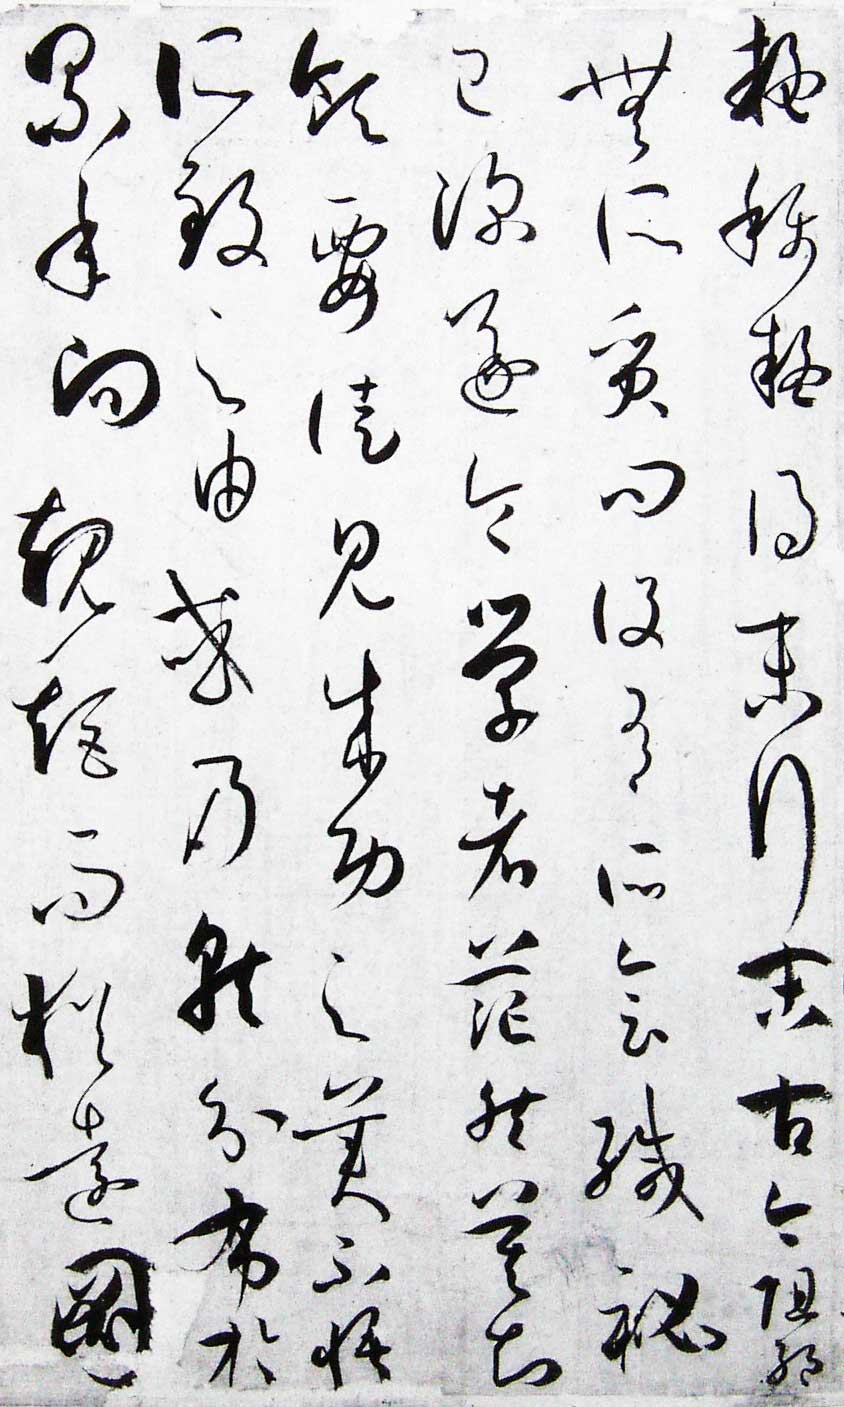 疑稱疑得末行末古今阻絕
無所質問設有所會緘秘
已深遂令學者茫然莫知
領要徒見成功之美不悟
所致之由或乃就分布於
累年向規矩而猶遠圖